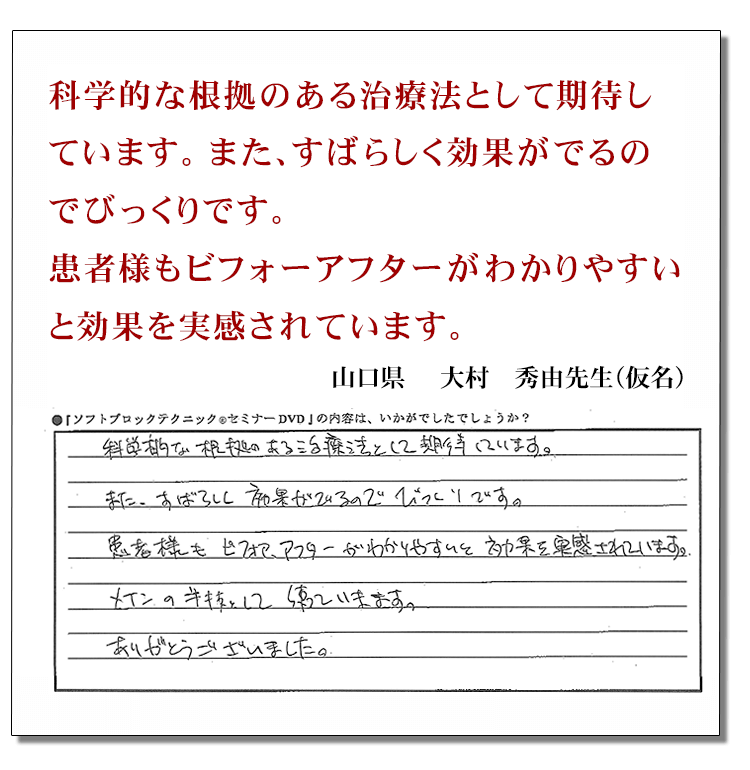 科学的な根拠のある治療法として期待し
ています。また、すばらしく効果がでるの
でびっくりです。
患者様もビフォーアフターがわかりやすい
と効果を実感されています。
山口県 大村 秀由先生（仮名）
●『ソフトブロックテクニック®セミナーDVD』の内容は、いかがでしたでしょうか？
科学的な根拠のある治療法として期待しています。
また、すばらしく効果がでるのでびっくりです。
患者様もビフォア、アフターがわかりやすいと効果を実感されています。
メインの手技として使っていきます。
ありがとうございました。